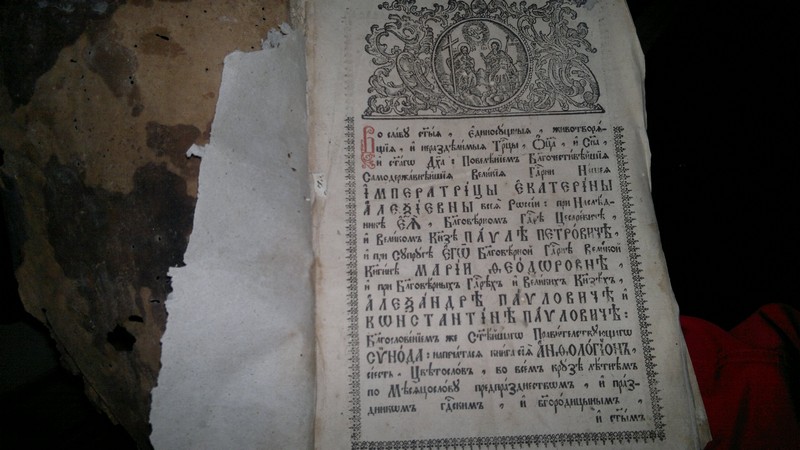 Во славу ст҃ыѧ, єдиносущныѧ, животворѧ-
щиѧ, и нераздѣлимыѧ Трⷪ҇цы, Ѻ҆ц҃а̀, и Сн҃а
и ст҃агѡ Дх҃а: Повелѣнїемъ Благочестивѣйшїѧ
Самодержавнѣйшїѧ Великїѧ Гдⷭ҇рни Нашеѧ
ІМПЕРАТРИЦЫ ЕКАТЕРИНЫ
АЛЕѮІЕВНЫ всеѧ Рѡссїи: при Наслѣд-
никѣ ЕѦ̀, Благовѣрномъ Гдⷭ҇рѣ Цесаревичѣ,
и Великомъ Кн҃зѣ ПАУЛѢ ПЕТРОВИЧѢ,
и при Супругѣ ЕГѠ̀ Благовѣрной Гдⷭ҇рнѣ Великой
Кнѧгинѣ МАРІИ ѲЕОДѠРОВНѢ,
и при Благовѣрныхъ Гдⷭ҇рѣхъ и Великихъ Кн҃зѣхъ,
АЛЕѮАНДРѢ ПАУЛОВИЧѢ и
КѠНСТАНТІНѢ ПАУЛОВИЧѢ:
Благословенїемъ же Ст҃ѣйшагѡ Правителствующагѡ
СУНОДА: напечатасѧ книга сїѧ АНѲОЛОГІОНЪ,
сіесть, Цвѣтословъ, во всемъ крузѣ лѣтнѣмъ
по Мѣсѧцослову предпразднествомъ, и праз-
дникѡмъ гдⷭ҇скимъ, и бг҃ородичнымъ,
и ст҃ымъ